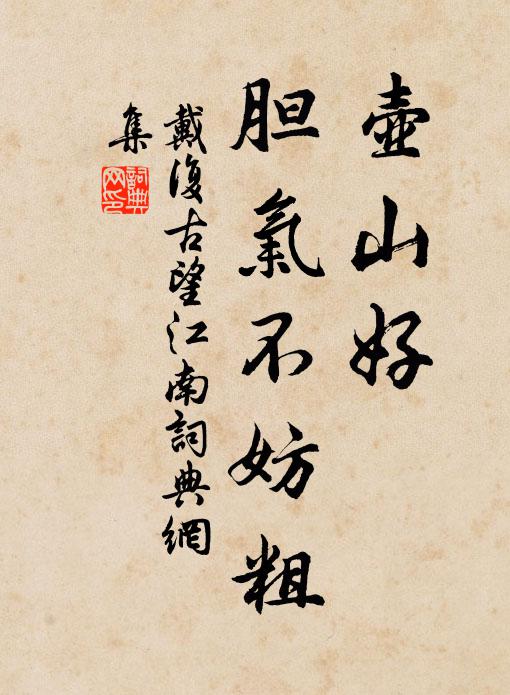 壺山好
胆氣不妨粗
戴復古望江南詞典網
集
詞典
网印